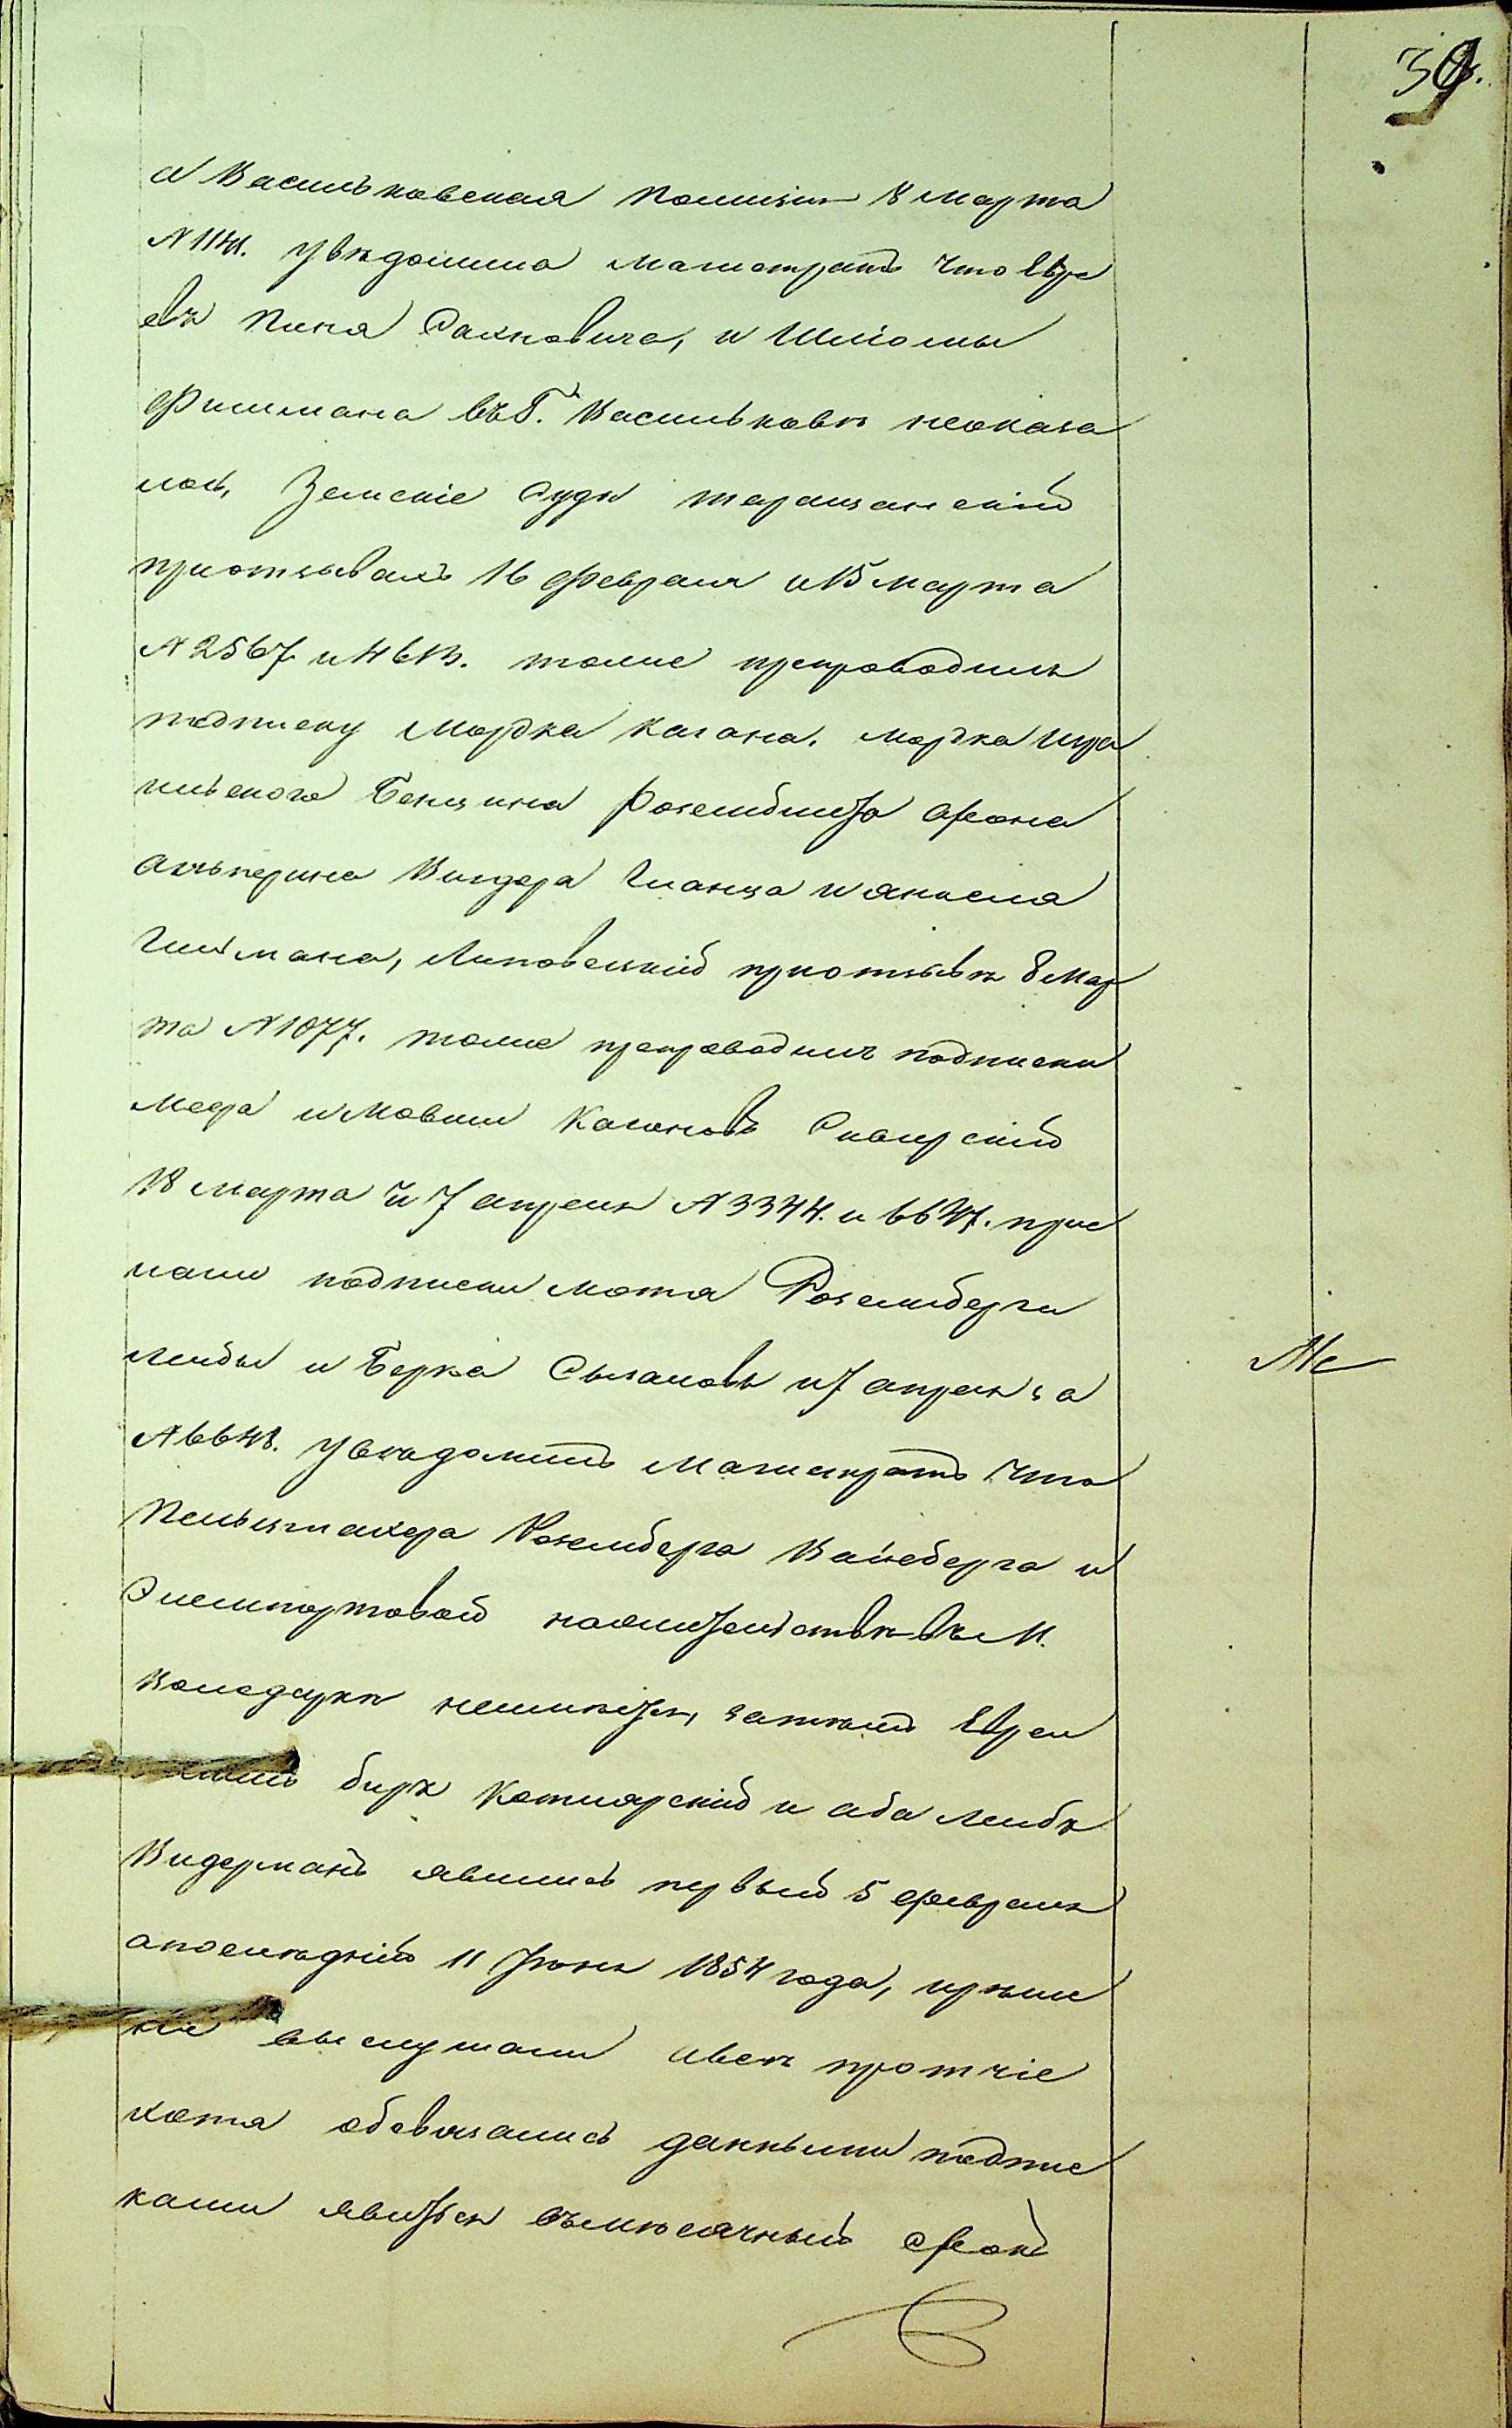 39.
а Васильковская Полиція 8 Марта
N 1141. Увѣдомила Магистратъ что Евре
евъ Пиня Сахновича, и Шліомы
Фишмана въ Г. Васильковѣ неоказа
лось, Земскіе Суды таращанскій
приотзывахъ 16 февраля и 15 марта
N 2567 и 4613. токмо препроводилъ
подписку Мордка Кагана. Мордка Изра
ильского Бенциона Розенблита Арона
Альперина Вигдора Гланца и Янкеля
Гитмана, Липовецкій приотзывѣ 8 Мар
та N 1077. токмо препроводилъ подписки
Меера и Мовши Кагановъ Сквирскій
18 марта и 7 апреля N 3344. и 6647. прис
лали подписки Мотя Розенберга
Лейбы и Берка Сыгаловъ и 7 апреля за
N 6648. Увѣдомилъ Магистратъ что
Пельцмахера Розенберга Вайсберга и
жительствѣ въ М.
Володаркѣ неимѣется, затѣмъ Евреи
беръ Котлярскій и аба Лейбъ
Видерманъ явились первый 5 февраля
апослѣдній 11 Іюня 1854 года, ирѣше
ніе выслушали ивсѣ протчіе
хотя обовязались данными подпис
ками явиться въмѣсячный срокъ